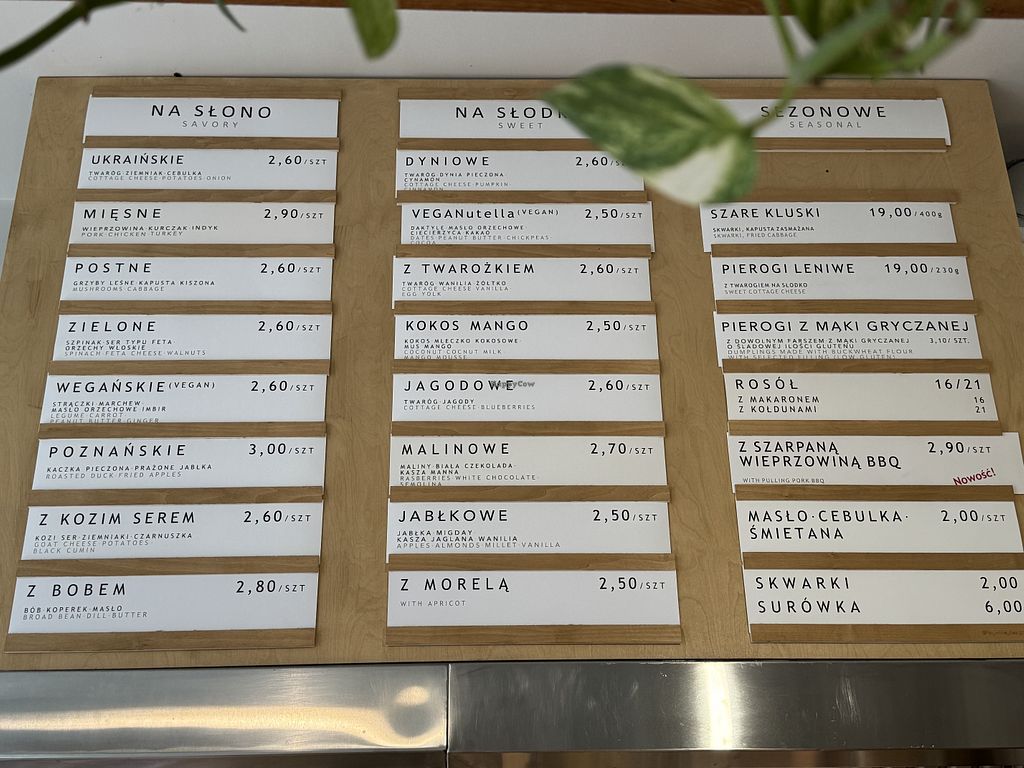 NA SŁONO
SAVORY
UKRAIŃSKIE 2,60/SZT
TWARÓG·ZIEMNIAK·CEBULKA
COTTAGE CHEESE·POTATOES·ONION
MIĘSNE 2,90/SZT
WIEPRZOWINA·KURCZAK·INDYK
PORK·CHICKEN·TURKEY
POSTNE 2,60/SZT
GRZYBY LEŚNE·KAPUSTA KISZONA
MUSHROOMS·CABBAGE
ZIELONE 2,60/SZT
SZPINAK·SER TYPU FETA·
ORZECHY WŁOSKIE
SPINACH·FETA CHEESE·WALNUTS
WEGAŃSKIE (VEGAN) 2,60/SZT
STRĄCZKI·MARCHEW·
MASŁO ORZECHOWE·IMBIR
LEGUME·CARROT·
PEANUT BUTTER·GINGER
POZNAŃSKIE 3,00/SZT
KACZKA PIECZONA·PRAŻONE JABŁKA
ROASTED DUCK·FRIED APPLES
Z KOZIM SEREM 2,60/SZT
KOZI SER·ZIEMNIAKI·CZARNUSZKA
GOAT CHEESE·POTATOES·
BLACK CUMIN
Z BOBEM 2,80/SZT
BÓB·KOPEREK·MASŁO
BROAD BEAN·DILL·BUTTER
NA SŁODK
SWEET
DYNIOWE 2,60/SZT
TWARÓG·DYNIA PIECZONA·
CYNAMON
COTTAGE CHEESE·PUMPKIN·
CINNAMON
VEGANutella (VEGAN) 2,50/SZT
DAKTYLE·MASŁO ORZECHOWE
CIECIERZYCA·KAKAO
DATES·PEANUT BUTTER·CHICKPEAS·
COCOA
Z TWAROŻKIEM 2,60/SZT
TWARÓG·WANILIA·ŻÓŁTKO
COTTAGE CHEESE·VANILLA·
EGG YOLK
KOKOS MANGO 2,50/SZT
KOKOS·MLECZKO KOKOSOWE·
MUS MANGO
COCONUT·COCNUT MILK·
MANGO MOUSSE
JAGODOWE 2,60/SZT
HappyCow
TWARÓG·JAGODY
COTTAGE CHEESE·BLUEBERRIES
MALINOWE 2,70/SZT
MALINY·BIAŁA CZEKOLADA·
KASZA MANNA
RASBERRIES·WHITE CHOCOLATE·
SEMOLINA
JABŁKOWE 2,50/SZT
JABŁKA·MIGDAY·
KASZA JAGLANA·WANILIA
APPLES·ALMONDS·MILLET·VANILLA
Z MORELĄ 2,50/SZT
WITH APRICOT
SEZONOWE
SEASONAL
SZARE KLUSKI 19,00/400g
SKWARKI, KAPUSTA ZASMAŻANA
SKWARKI, FRIED CABBAGE
PIEROGI LENIWE 19,00/230g
Z TWAROGIEM NA SŁODKO
SWEET COTTAGE CHEESE
PIEROGI Z MĄKI GRYCZANEJ
Z DOWOLNYM FARSZEM Z MĄKI GRYCZANEJ 3,10/ SZT.
O ŚLADOWEJ ILOŚCI GLUTENU
DUMPLINGS MADE WITH BUCKWHEAT FLOUR
WITH SELECTED FILLING (LOW GLUTEN)
ROSÓŁ 16/21
Z MAKARONEM 16
Z KOŁDUNAMI 21
Z SZARPANĄ 2,90/SZT
WIEPRZOWINĄ BBQ
WITH PULLING PORK BBQ Nowość!
MASŁO·CEBULKA· 2,00/SZT
ŚMIETANA
SKWARKI 2,00
SURÓWKA 6,00